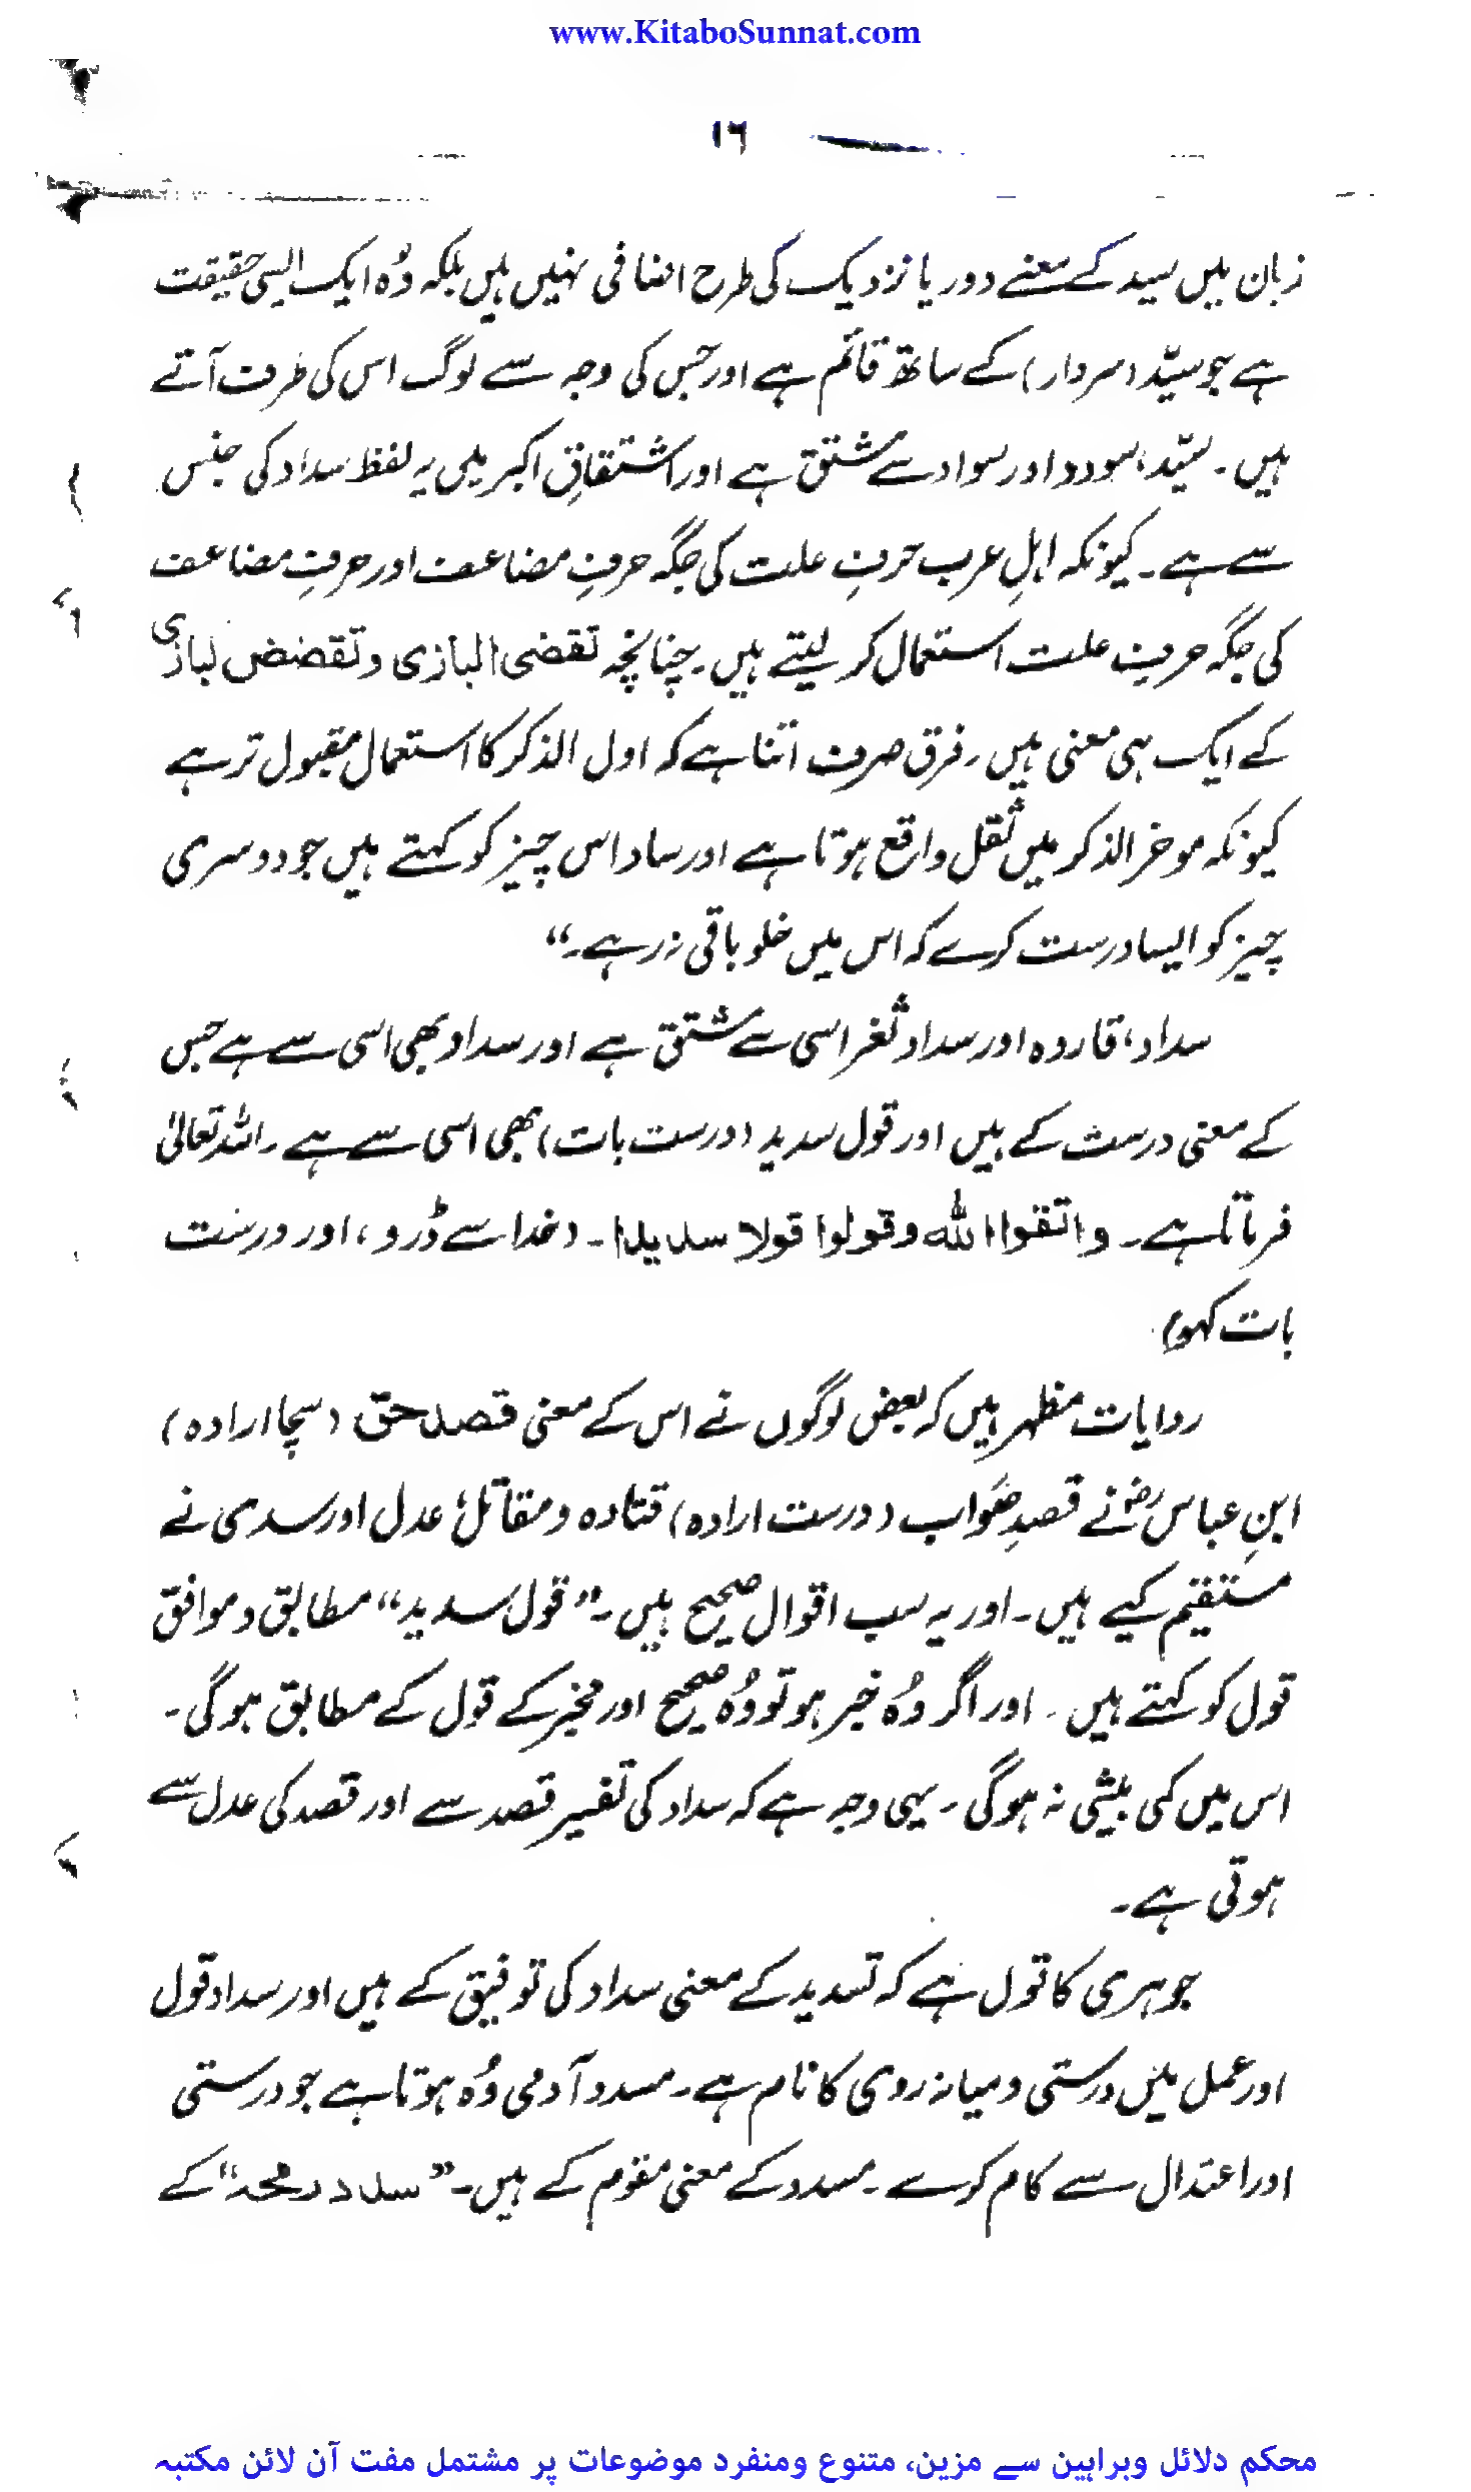 www.KitaboSunnat.com
۱۶
زبان میں سید کے معنے دور یا نزدیک کی طرح اضافی نہیں ہیں بلکہ وُہ ایک ایسی حقیقت
ہے جو سیّد (سردار) کے ساتھ قائم ہے اور جس کی وجہ سے لوگ اس کی طرف آتے
ہیں۔ سیّد، سودد اور سواد سے مشتق ہے اور اشتقاقِ اکبر میں یہ لفظ سداد کی جنس
سے ہے۔ کیونکہ اہلِ عرب حرفِ علت کی جگہ حرفِ مضاعف اور حرفِ مضاعف
کی جگہ حرف علت استعمال کر لیتے ہیں۔ چنانچہ تقضی البازی وتقضض لبازی
کے ایک ہی معنی ہیں۔ فرق صرف اتنا ہے کہ اول الذکر کا استعمال مقبول تر ہے
کیونکہ موخر الذکر میں ثقل واقع ہوتا ہے اور ساد اس چیز کو کہتے ہیں جو دوسری
چیز کو ایسا درست کرے کہ اس میں خلو باقی نہ رہے۔“
سداد، قارورہ اور سداد ثغر اسی سے مشتق ہے اور سداد بھی اسی سے ہے جس
کے معنی درست کے ہیں اور قول سدید (درست بات) بھی اسی سے ہے۔ اللہ تعالیٰ
فرماتا ہے۔ واتقوا الله وقولوا قولا سدیدا۔ (خدا سے ڈرو، اور درست
بات کہو)
روایات مظہر ہیں کہ بعض لوگوں نے اس کے معنی قصد حق (سچا ارادہ)
ابنِ عباسؓ نے قصدِ صَواب (درست ارادہ) قتادہ و مقاتلؒ عدل اور سدی نے
مستقیم کیے ہیں۔ اور یہ سب اقوال صحیح ہیں۔ ”قول سدید“ مطابق و موافق
قول کو کہتے ہیں۔ اور اگر وُہ خبر ہو تو وُہ صحیح اور مخبر کے قول کے مطابق ہوگی۔
اس میں کمی بیشی نہ ہوگی۔ یہی وجہ ہے کہ سداد کی تفسیر قصد سے اور قصد کی عدل سے
ہوتی ہے۔
جوہری کا قول ہے کہ تسدید کے معنی سداد کی توفیق کے ہیں اور سداد قول
اور عمل میں درستی و میانہ روی کا نام ہے۔ مسدد آدمی وُہ ہوتا ہے جو درستی
اور اعتدال سے کام کرے۔ مسدد کے معنی مقوم کے ہیں۔ ”سدد رمحہ“ کے
محکم دلائل وبراہین سے مزین، متنوع ومنفرد موضوعات پر مشتمل مفت آن لائن مکتبہ